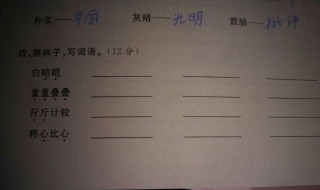 朴实——华丽 灰暗——光明 鼓励——批评
四、照样子,写词语。(12分)
白皑皑
重重叠叠
斤斤计较
将心比心